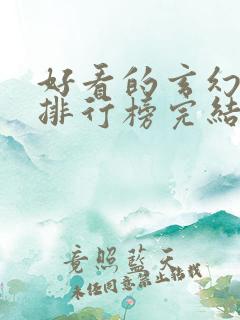 好看的玄幻
排行榜完結
竟照藍天
未经同意禁止转载